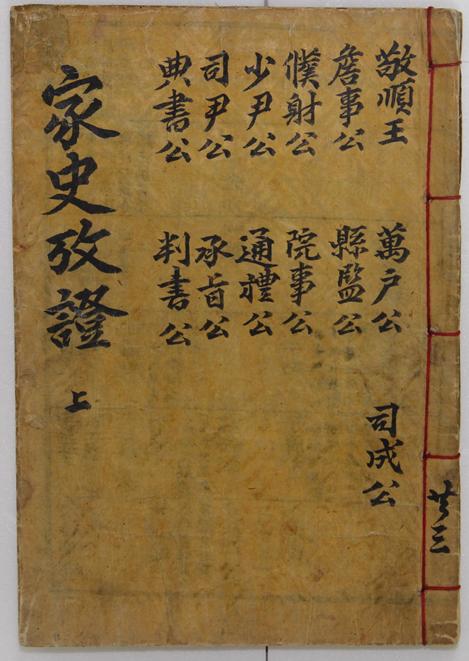 共三
敬順王 萬戶公 司成公
詹事公 縣監公
僕射公 院事公
少尹公 通禮公
司尹公 承旨公
典書公 判書公
家史攷證 上